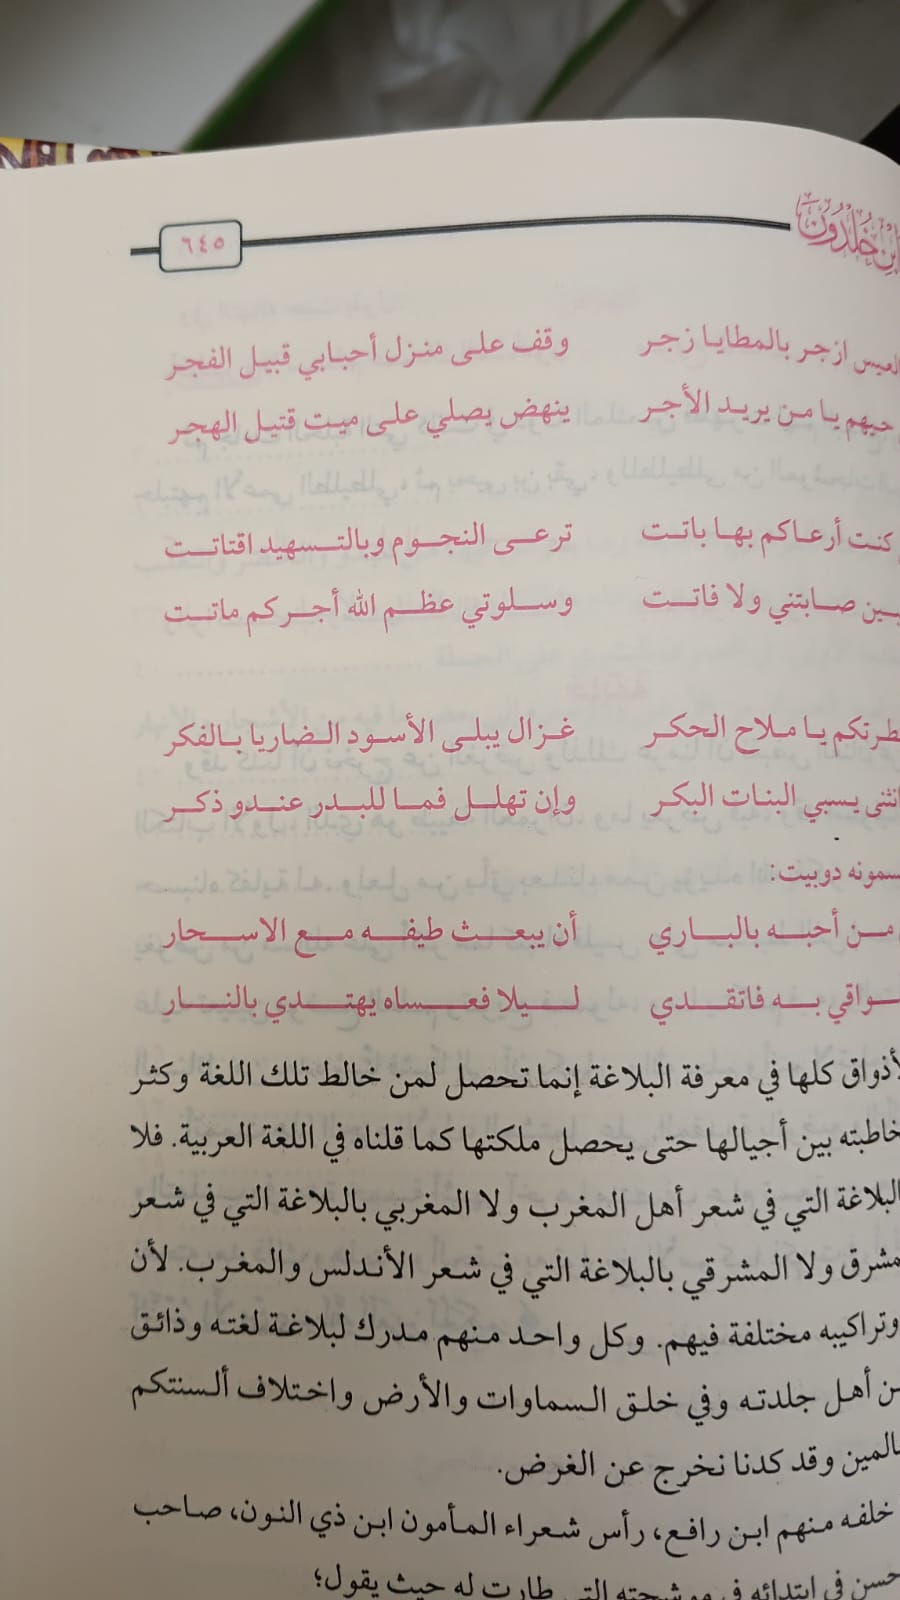 ابن خلدون
٦٤٥
العيس ازجر بالمطايا زجر وقف على منزل أحبابي قبيل الفجر
حيهم يا من يريد الأجر ينهض يصلي على ميت قتيل الهجر
كنت أرعاكم بها باتت ترعى النجوم وبالتسهيد اقتاتت
ـين صابتني ولا فاتت وسلوتي عظم الله أجركم ماتت
ـطرتكم يا ملاح الحكر غزال يبلى الأسود الضاريا بالفكر
ـانثنى يسبي البنات البكر وإن تهلل فما للبدر عندو ذكر
ـسمونه دوبيت:
من أحبه بالباري أن يبعث طيفه مع الاسحار
ـواقي به فاتقدي ليلا فعساه يهتدي بالنار
لأذواق كلها في معرفة البلاغة إنما تحصل لمن خالط تلك اللغة وكثر
ـخاطبته بين أجيالها حتى يحصل ملكتها كما قلناه في اللغة العربية. فلا
البلاغة التي في شعر أهل المغرب ولا المغربي بالبلاغة التي في شعر
ـمشرق ولا المشرقي بالبلاغة التي في شعر الأندلس والمغرب. لأن
وتراكيبه مختلفة فيهم. وكل واحد منهم مدرك لبلاغة لغته وذائق
ـن أهل جلدته وفي خلق السماوات والأرض واختلاف ألسنتكم
ـالمين وقد كدنا نخرج عن الغرض.
خلفه منهم ابن رافع، رأس شعراء المأمون ابن ذي النون، صاحب
حسن في ابتدائه في موشحته التي طارت له حيث يقول؛